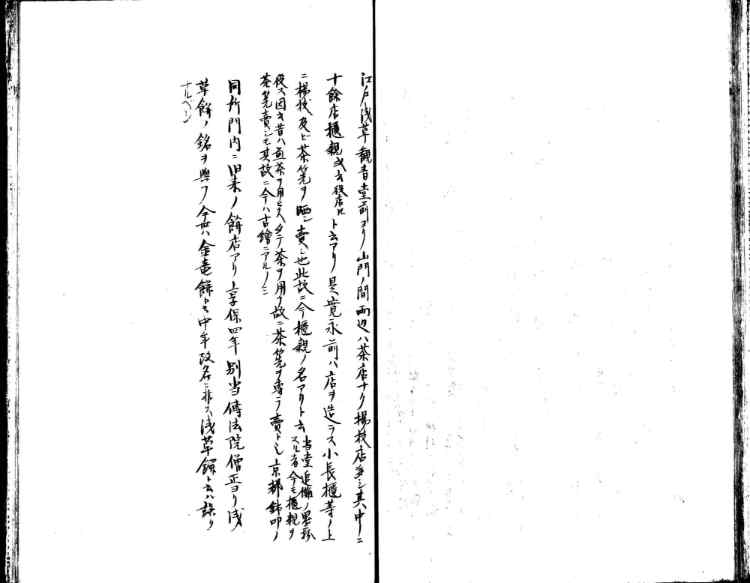 江戸浅草観音堂前ヨリ山門ノ間両辺ハ茶店ナク楊枝店多シ其中ニ
十餘店櫃親或ハ役店トト云アリ是寛永前ハ店ヲ造ラス小長櫃等ノ上
ニ楊枝及ヒ茶筅ヲ晒シ賣ル也此故ニ今櫃親ノ名アリト云
当堂追儺ノ悪鬼
スル者今モ櫃親ヲ
役ス因云昔ハ煎茶ヲ用ヒスタテ茶ヲ用フ故ニ茶筅ヲ専ラ賣ル也京都鉢叩ノ
茶筅賣モ其故ニ今ハ古繪ニアルノミ
同所門内ニ旧来ノ餅店アリ享保四年別当傳法院僧正ヨリ浅
草餅ノ銘ヲ與フ今世ハ金竜餅トモ中年改名ニ非ス浅草餅ト云ハ誤リ
ナルベシ